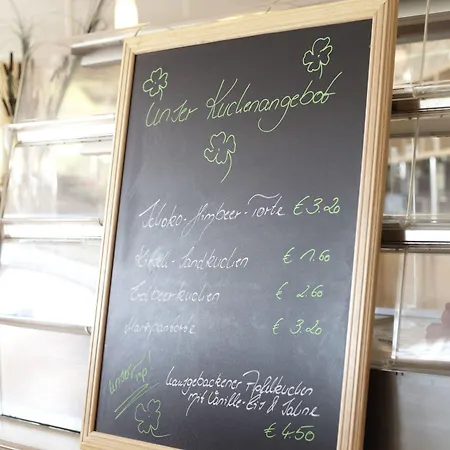 Unser Kuchenangebot
Schoko-Himbeer-Torte € 3.20
Sandkuchen € 1.60
Erdbeerkuchen € 2.60
Marzipantorte € 3.20
Unser Tip!
hausgebackener Apfelkuchen
mit Vanille-Eis & Sahne
€ 4.50